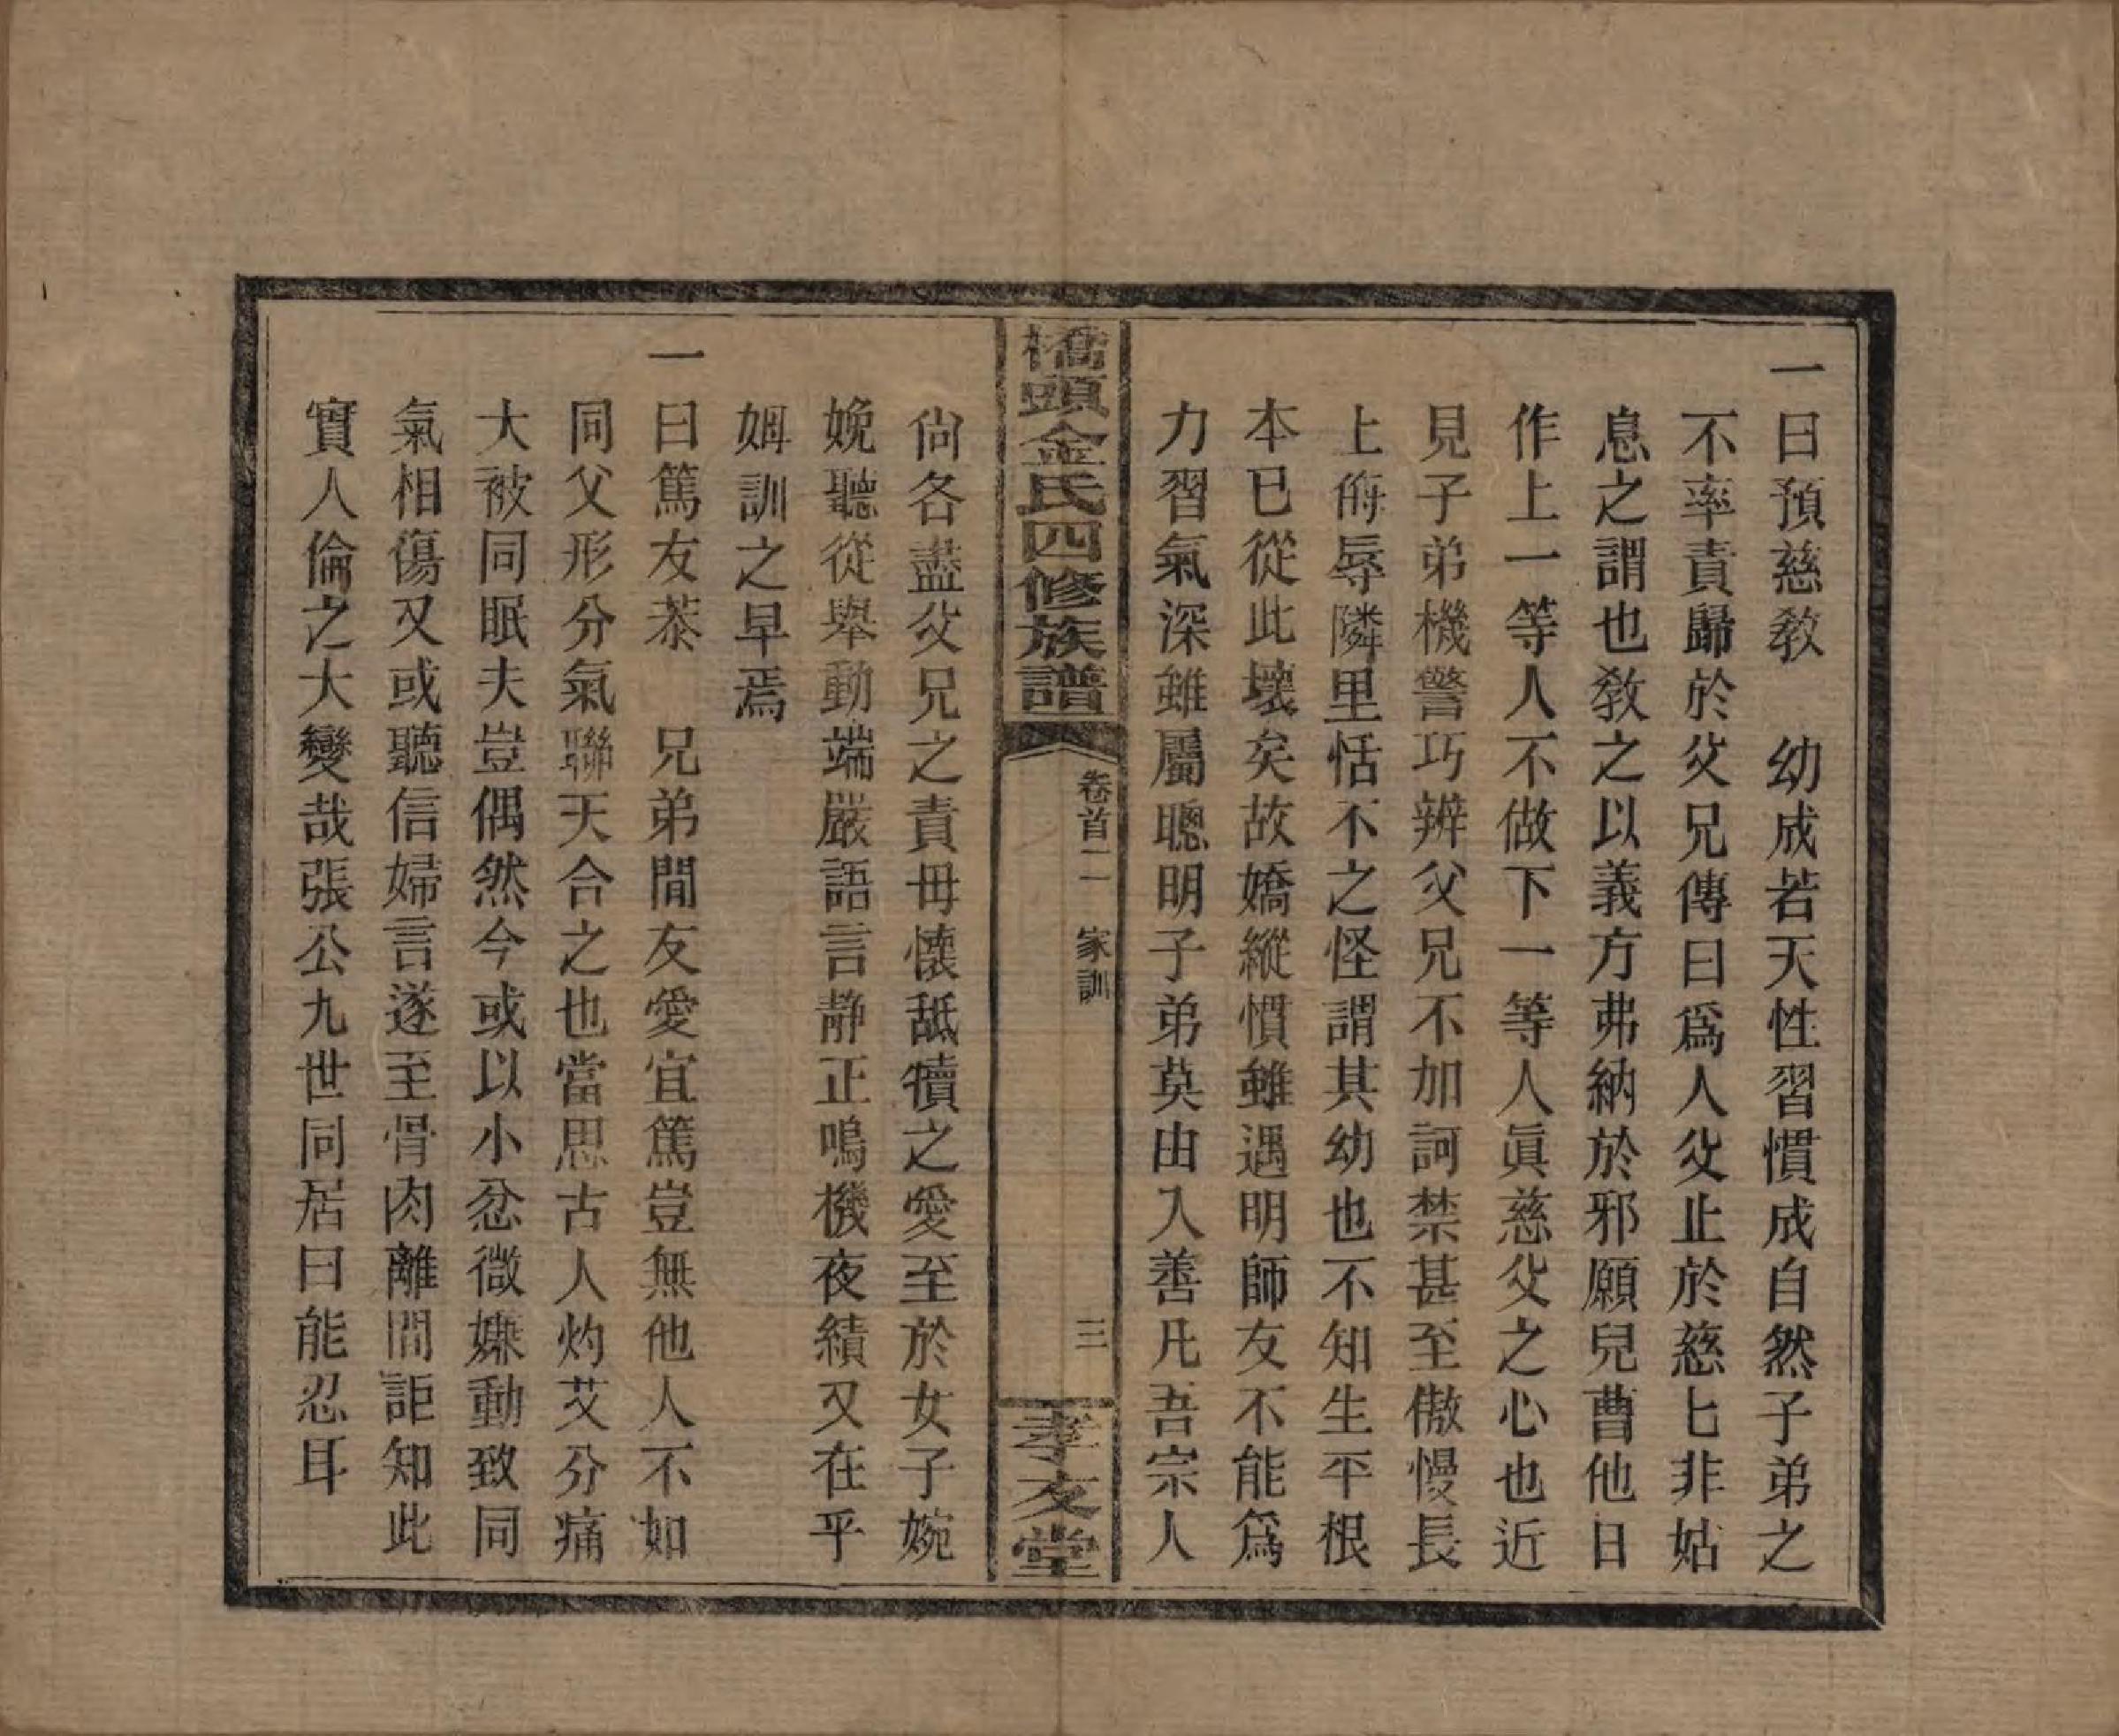 一曰預慈教　幼成若天性習慣成自然子弟之
不率責歸於父兄傳曰爲人父止於慈匕非姑
息之謂也教之以義方弗納於邪願兒曹他日
作上一等人不做下一等人眞慈父之心也近
見子弟機警巧辨父兄不加訶禁甚至傲慢長
上侮辱隣里恬不之怪謂其幼也不知生平根
本已從此壞矣故嬌縱慣雖遇明師友不能爲
力習氣深雖屬聰明子弟莫由入善凡吾宗人
橋頭金氏四修族譜
卷首二　家訓
三
孝友堂
尙各盡父兄之責毋懷舐犢之愛至於女子婉
娩聽從舉動端嚴語言静正鳴機夜績又在乎
姆訓之早焉
一曰篤友恭　兄弟閒友愛宜篤豈無他人不如
同父形分氣聯天合之也當思古人灼艾分痛
大被同眠夫豈偶然今或以小忿微嫌動致同
氣相傷又或聽信婦言遂至骨肉離間詎知此
實人倫之大變哉張公九世同居曰能忍耳